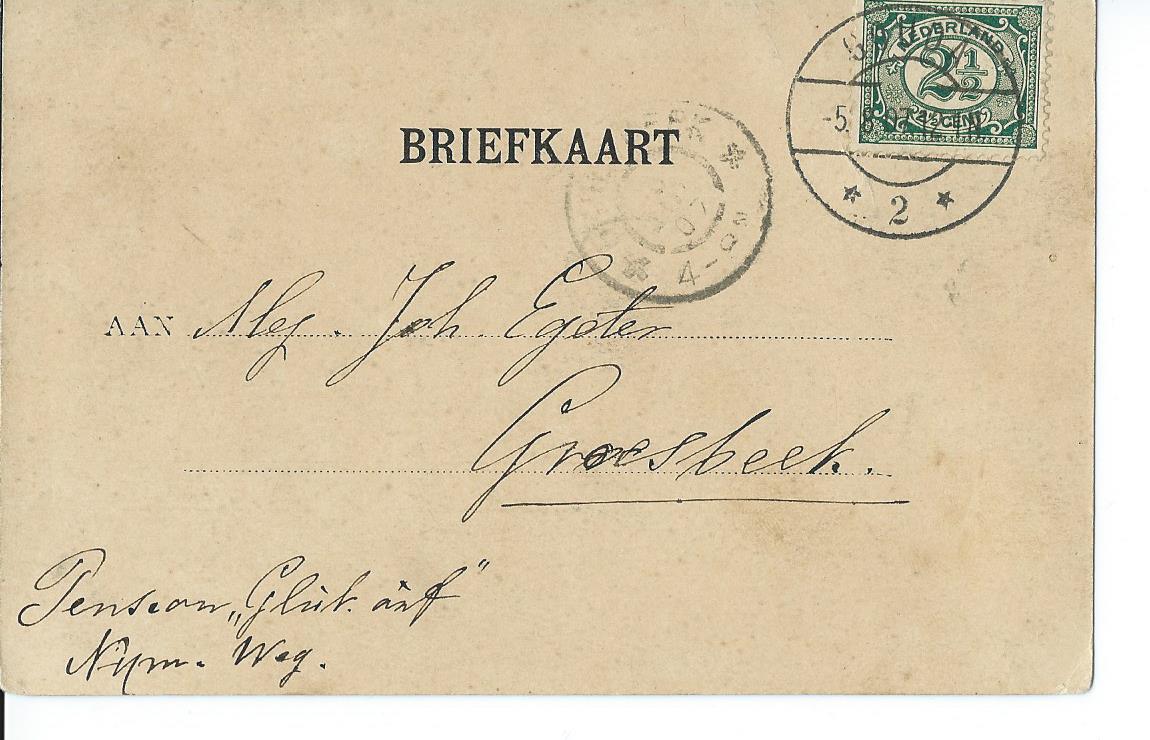 NEDERLAND
2½
2½ CENT
BRIEFKAART
07
4-8N
2
AAN Mej. Joh. Egeter
Groesbeek.
Pension „Glük auf"
Nijm. Weg.